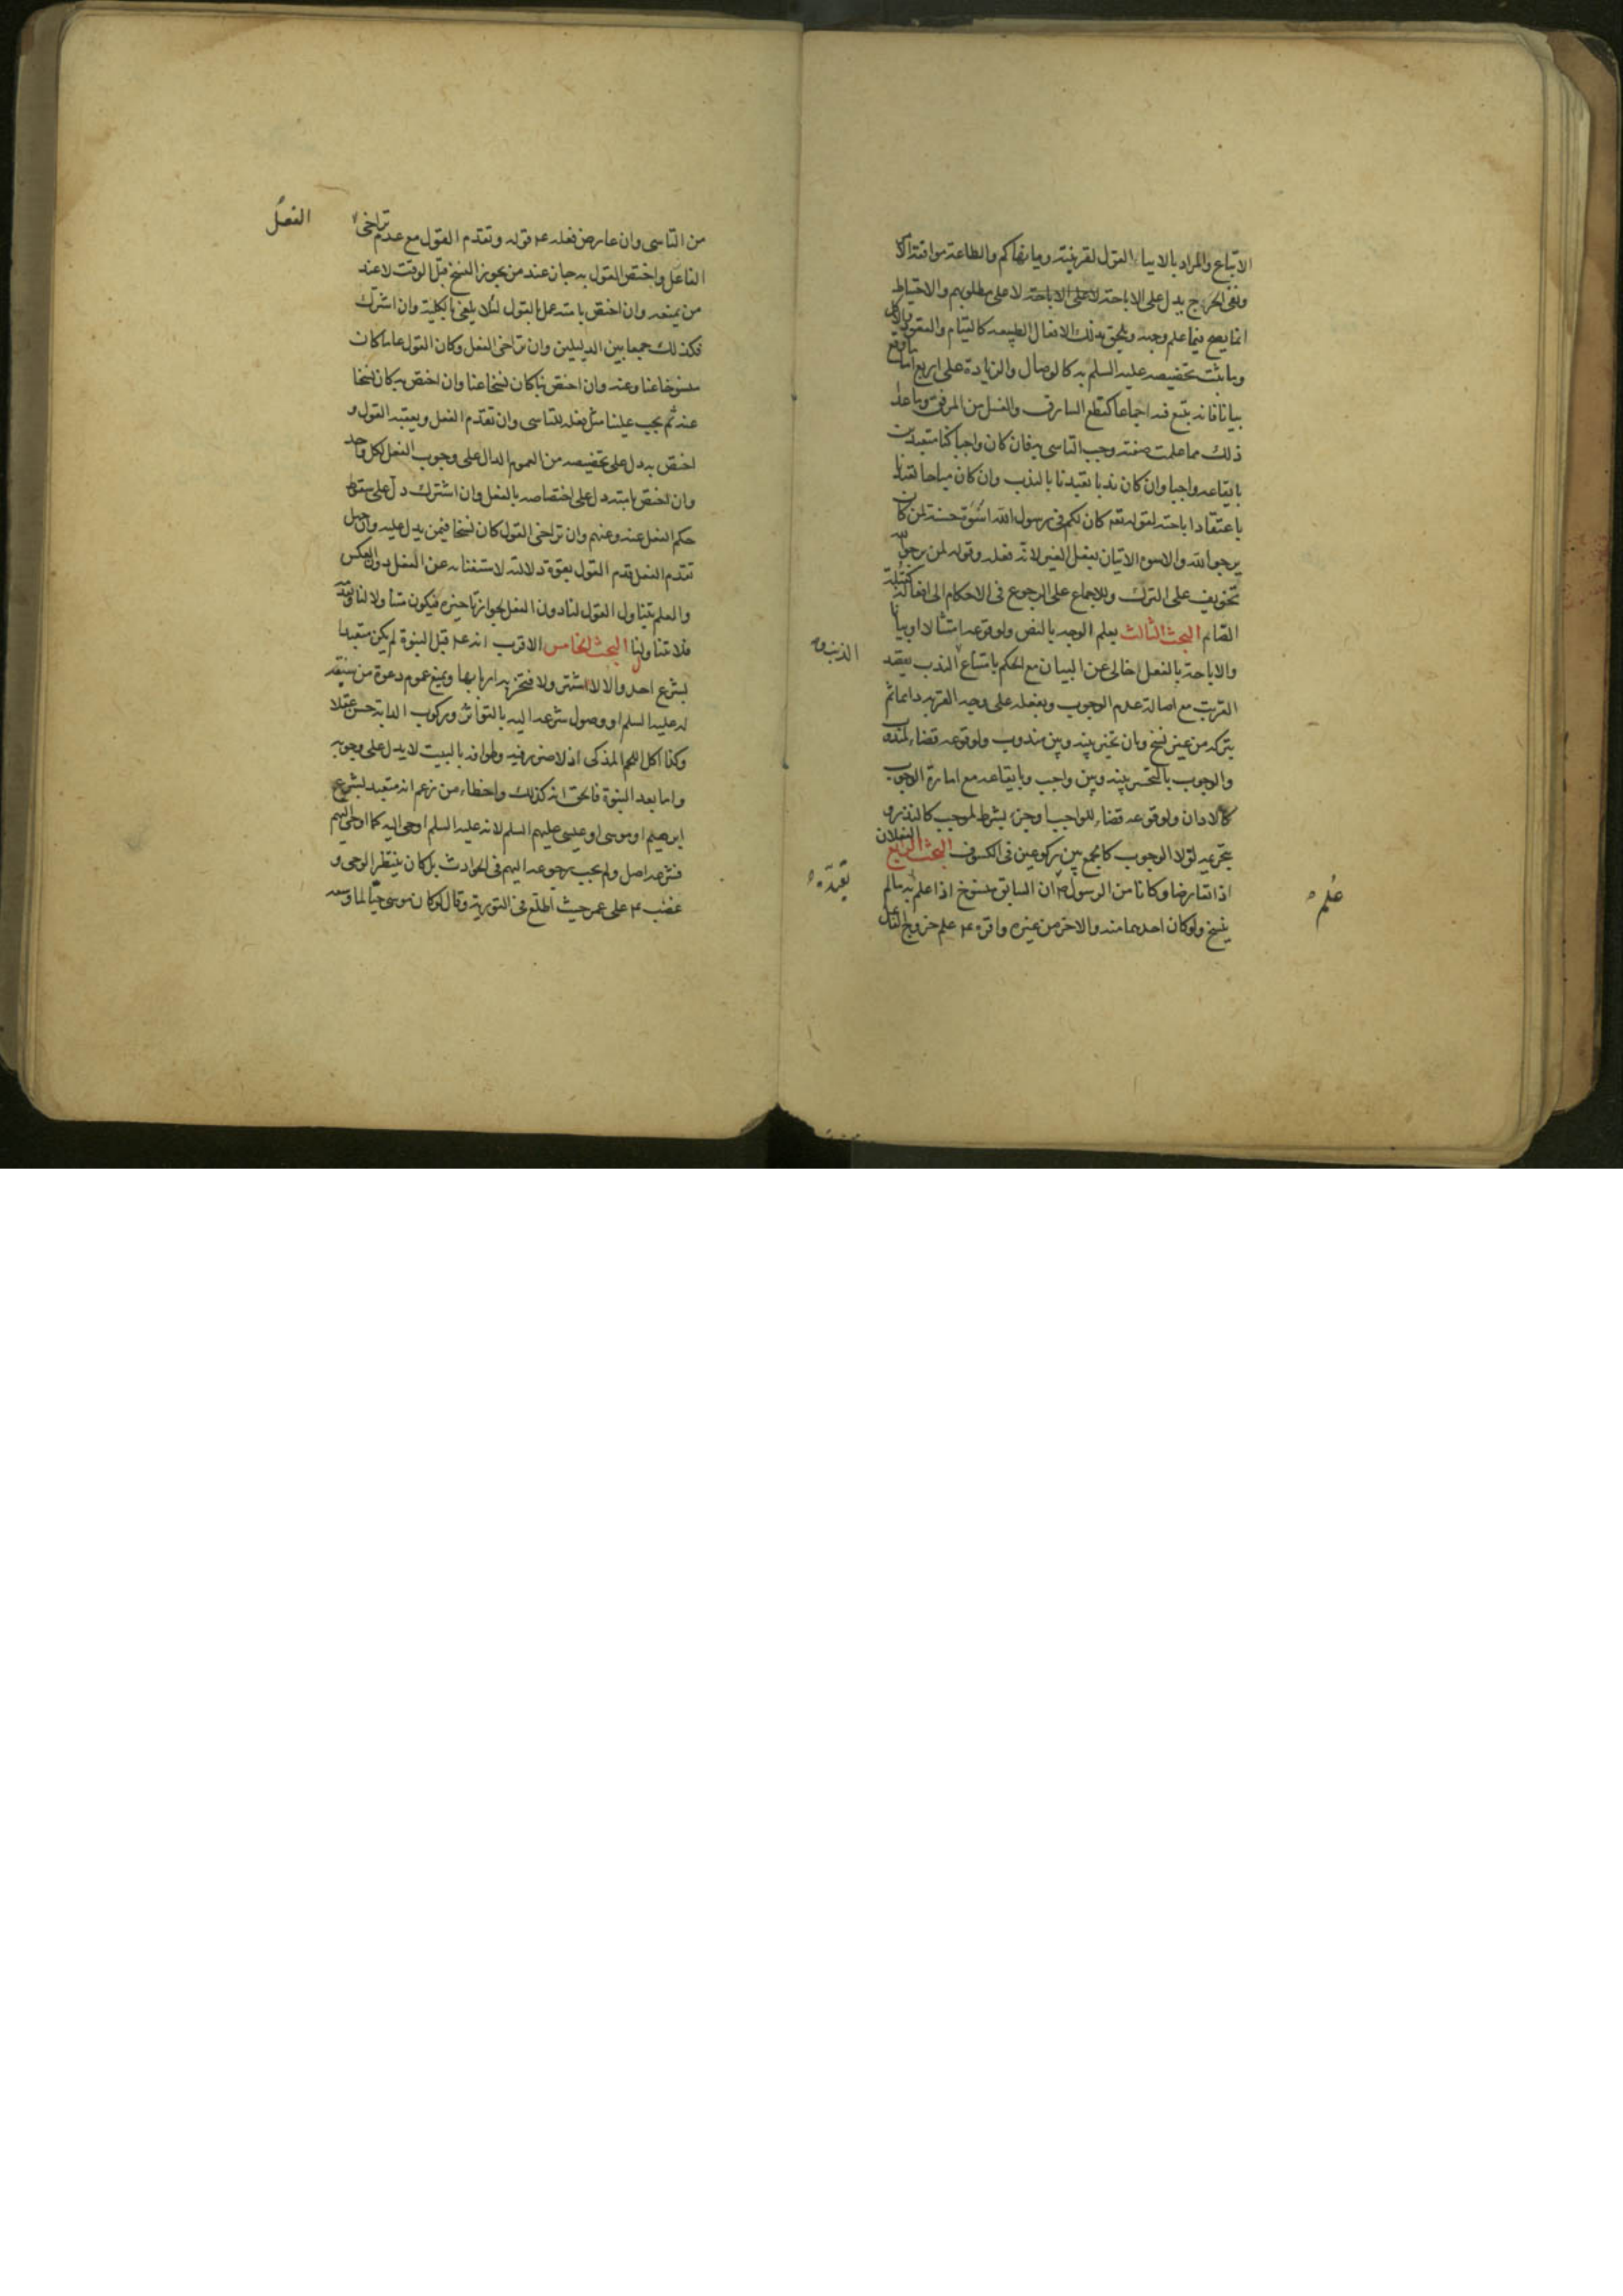 الاتباع والمراد بالايتاء القول لقرينة وما نهاكم والطاعة موافقة الامر
ونفى الحرج يدل على الاباحة لا على مطلوبهم والاحتياط
انما يصح فيما علم وجهه ويلحق بذلك الافعال الطبيعيه كالقيام والقعود والاكل
وما ثبت تخصيصه عليه السلم به كالوصال والزيادة على اربع اما ما وقع
بيانا فانه يتبع فيه اجماعا كقطع السارق والغسل من المرفق وما عدا
ذلك مما علمت صفته وجب التاسى به فان كان واجبا كنا متعبدين
بايقاعه واجبا وان كان ندبا تعبدنا بالندب وان كان مباحا تعبدنا
باعتقاد اباحته لقوله تعه كان لكم فى رسول الله اسوة حسنة لمن كان
يرجوا الله والاسوه الاتيان بفعل الغير لانه فعله وقوله لمن يرجو الله
تخويف على الترك وللاجماع على الرجوع فى الاحكام الى افعاله كقبلة
الصائم البحث الثالث يعلم الوجه بالنص ولوقوعه امتثالا او بيانا
والاباحة بالفعل الخالى عن البيان مع الحكم بامتناع الذنب بقصد
الذنب منه
القربة مع اصالة عدم الوجوب وبفعله على وجه القربه دائما ثم
يتركه من غير نسخ وبان تخير بينه وبين مندوب ولوقوعه قضاء لمندوب
والوجوب بالتخير بينه وبين واجب وبايقاعه مع امارة الوجوب
كالاذان ولوقوعه قضاء للواجب او جزء لشرط لموجب كالنذر و
بتحريمه لولا الوجوب كالجمع بين ركوعين فى الكسوف البحث الرابع الفعلان
اذا تعارضا وكانا من الرسول ص ان السابق منسوخ اذا علم انه ما لم
علم
تعبده
ينسخ ولو كان احدهما منه والاخر من غيره واقره ع علم خروج الفاعل
من التاسى وان عارض فعله ع قوله وتقدم القول مع عدم تراخى
الفعل
الفاعل واختص القول به جاز عند من يجوز النسخ قبل الوقت لا عند
من يمنعه وان اختص بامته عمل بالقول لئلا يلغى بالكلية وان اشترك
فكذلك جمعا بين الدليلين وان تراخى الفعل وكان القول عاما كان
منسوخا عنا وعنه وان اختص بنا كان نسخا عنا وان اختص به كان نسخا
عنه ثم يجب علينا مثل فعله للتاسى وان تقدم الفعل ويعقبه القول و
اختص به دل على تخصيصه من العموم الدال على وجوب الفعل لكل واحد
وان اختص بامته دل على اختصاصه بالفعل وان اشترك دل على سقوط
حكم الفعل عنه وعنهم وان تراخى القول كان نسخا فيمن يدل عليه وان جهل
تقدم الفعل قدم القول بقوة دلالته لاستغنائه عن الفعل دون العكس
والعلم بتناول القول لنا دون الفعل بجواز تاخيره فيكون متناولا لنا وتقدمه
فلا متناول لنا البحث الخامس الاقرب انه ع قبل النبوة لم يكن متعبدا
بشرع احد والا لاشتهر ولافتخر به اربابها ويمنع عموم دعوة من سبقه
له عليه السلم او وصول شرعه اليه بالتواتر وركوب الدابة حسن عقلا
وكذا اكل اللحم المذكى اذ لا ضرر فيه وطوافه بالبيت لا يدل على وجوبه
واما بعد النبوة فالحق انه كذلك واخطاء من زعم انه متعبد بشرع
ابرهيم او موسى او عيسى عليهم السلم لانه عليه السلم اوحى اليه كما اوحى اليهم
فشرعه اصل ولم يجب رجوعه اليهم فى الحوادث بل كان ينتظر الوحى و
غضب ع على عمر حيث اطلع فى التورية وقال لو كان موسى حيا لما وسعه